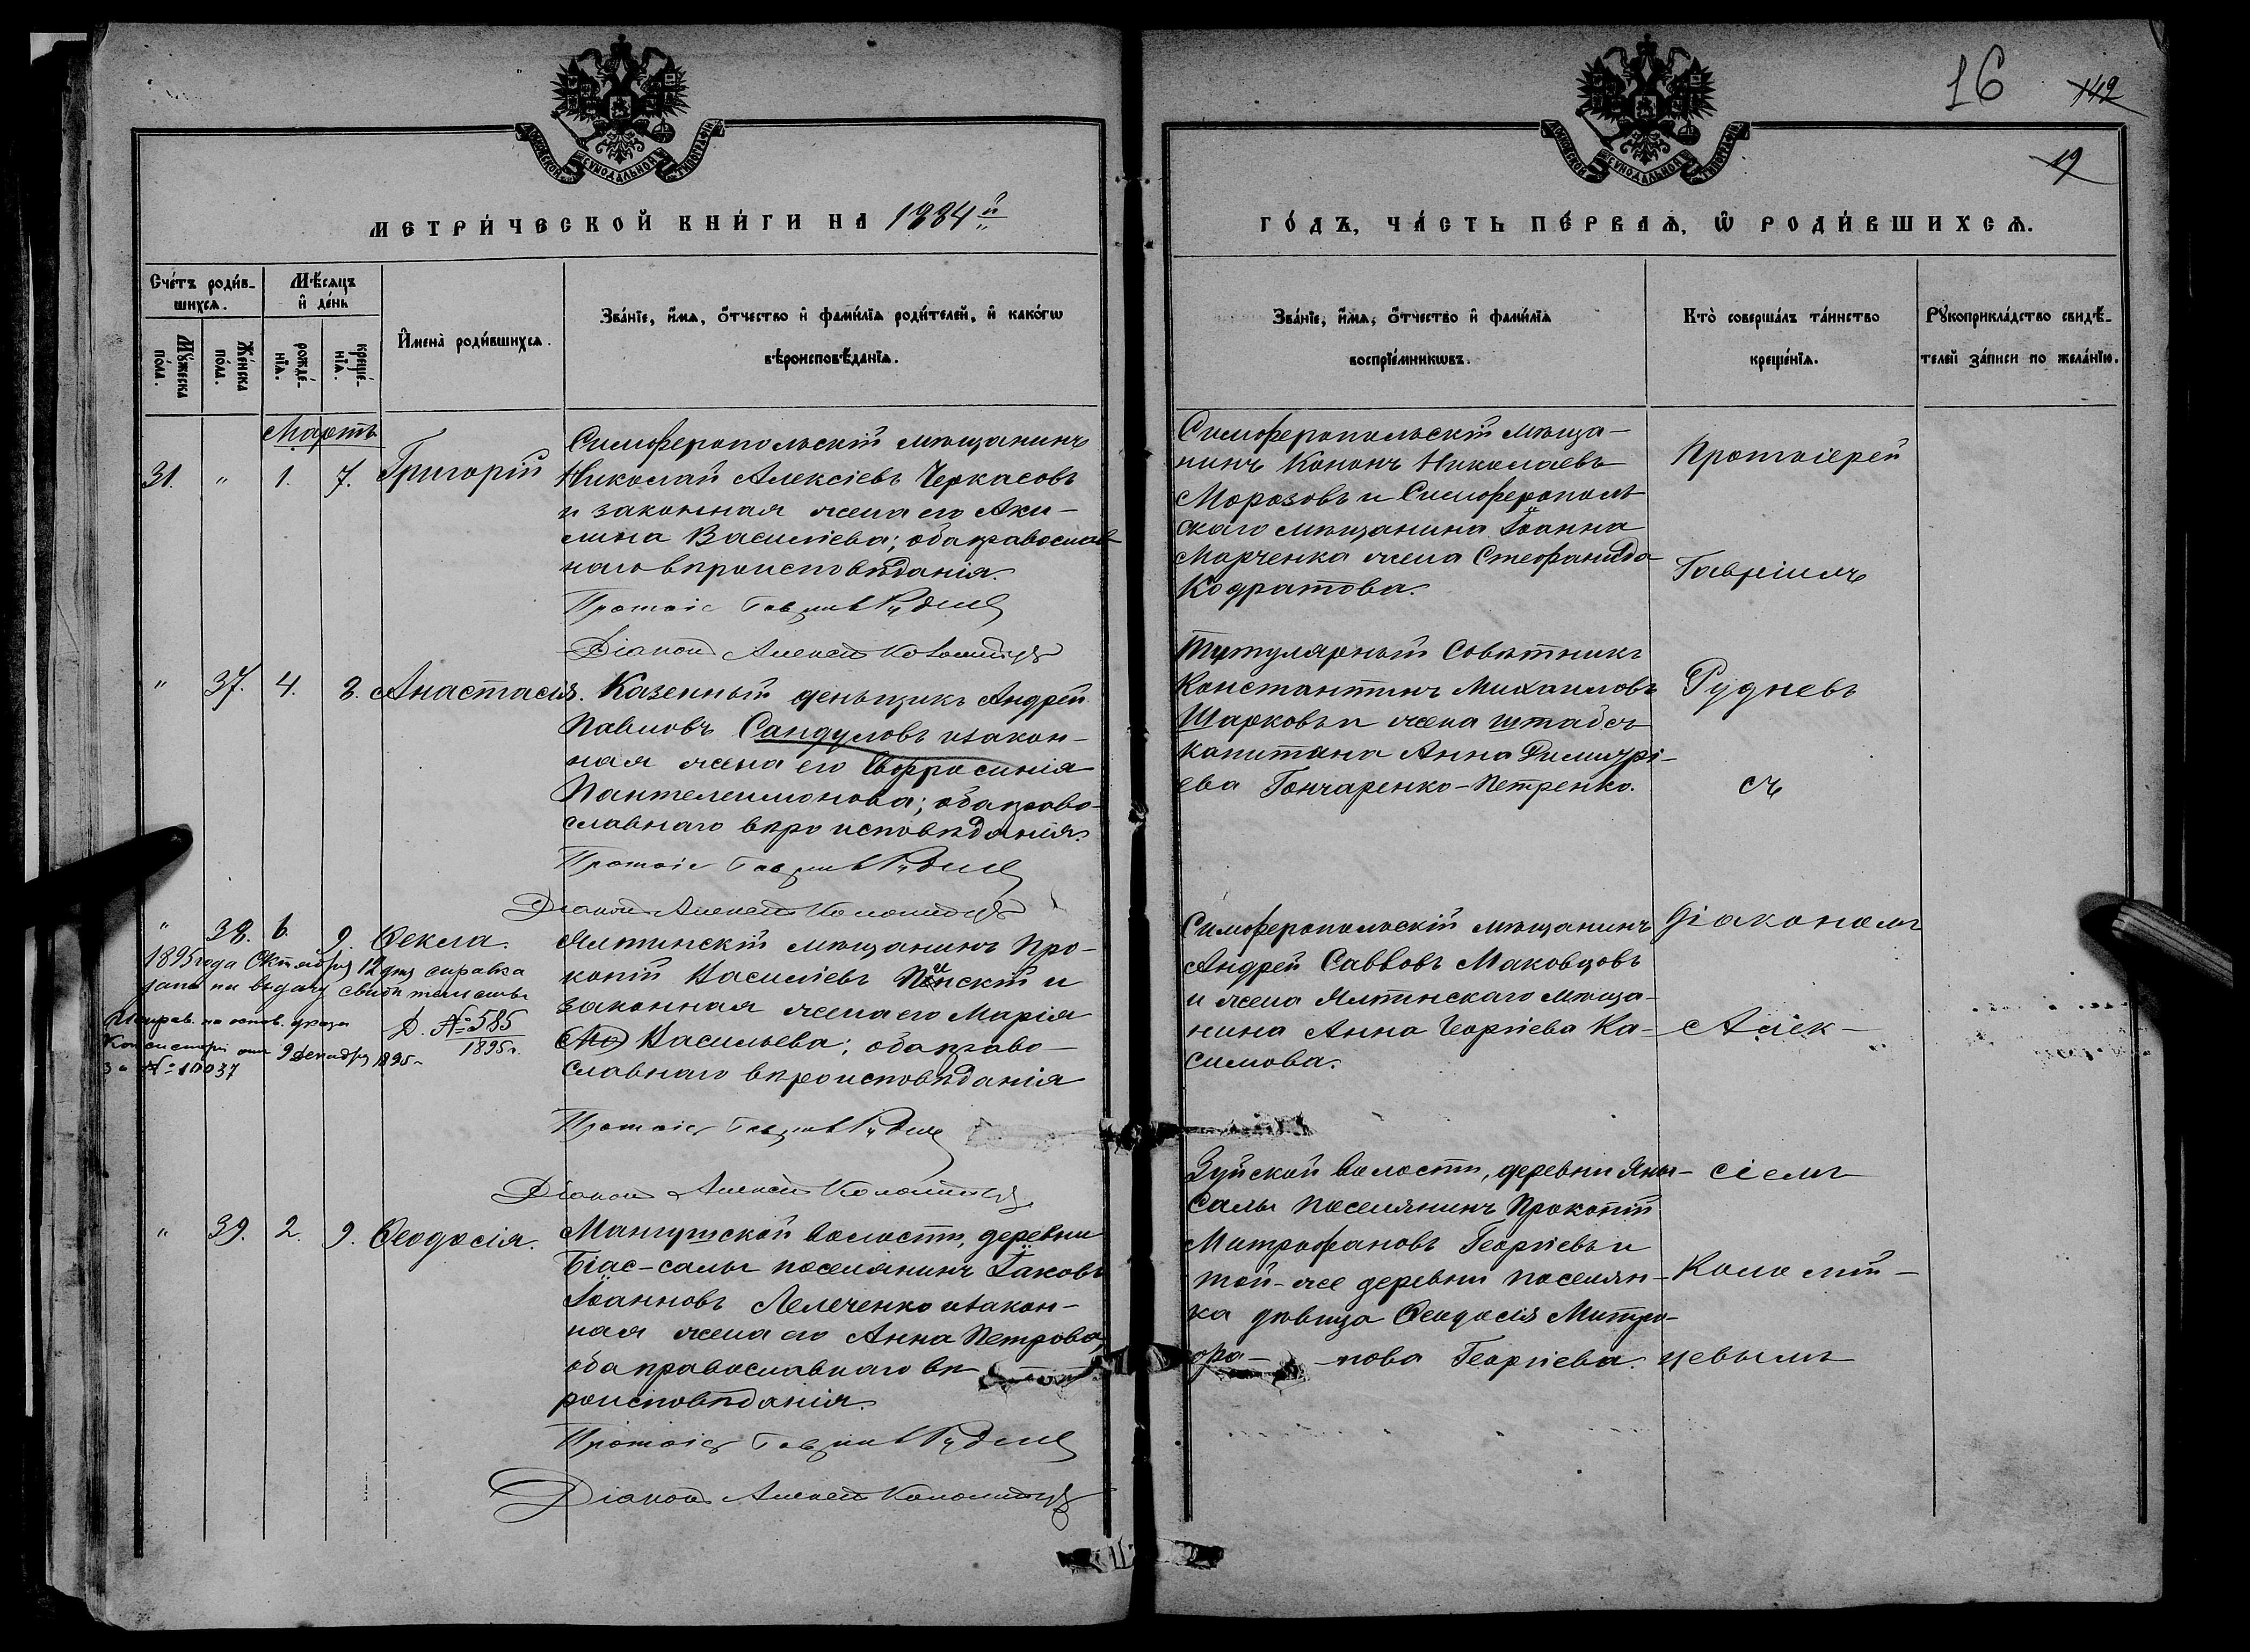 16 142
19
МОСКОВСКОЙ СѴНОДАЛЬНОЙ ТИПОГРАФІИ
МОСКОВСКОЙ СѴНОДАЛЬНОЙ ТИПОГРАФІИ
МЕТРИ́ЧЕСКОЙ КНИ́ГИ НА 1884й
ГО́ДЪ, ЧА́СТЬ ПЕ́РВАѦ, Ѡ҆ РОДИ́ВШИХСѦ.
Сче́тъ роди́в-
шихсѧ.
Мꙋ́жеска по́ла.
Же́нска по́ла.
Мѣ́сѧцъ
и҆ де́нь
рожде́-
нїѧ.
креще́-
нїѧ.
И҆мена̀ роди́вшихсѧ.
Зва́нїе, и҆́мѧ, ѻ҆́тчество и҆ фами́лїѧ роди́телей, и҆ како́гѡ
вѣроисповѣ́данїѧ.
Зва́нїе, и҆́мѧ, ѻ҆́тчество и҆ фами́лїѧ
воспрїе́мникѡвъ.
Кто̀ соверша́лъ та́инство
креще́нїѧ.
Рꙋкоприкла́дство свидѣ́-
телей за́писи по жела́нїю.
Мартъ
31. " 1. 7. Григорій
Симферопольскій мѣщанинъ
Николай Алексіевъ Черкасовъ
и законная жена его Аки-
лина Василіева; оба православ-
наго вѣроисповѣданія.
Протоіе Гавріилъ Руднев
Діакон Алексей Коломійцев
Симферопольскій мѣща-
нинъ Кононъ Николаевъ
Морозовъ и Симферополь-
скаго мѣщанина Іоанна
Марченка жена Стефанида
Кодратова.
Протоіерей
Гавріилъ
" 37. 4. 8. Анастасія.
Казенный деньщикъ Андрей
Павловъ Сандуловъ и закон-
ная жена его Евфросинія
Пантелеимонова; оба право-
славнаго вѣроисповѣданія.
Протоіе Гавріилъ Руднев
Діакон Алексей Коломійцев
Титулярный Совѣтникъ
Константинъ Михаиловъ
Шарковъ и жена штабсъ
капитана Анна Димитрі-
ева Гончаренко-Петренко.
Рудневъ
съ
" 38. 6. 9. Ѳекла.
1895 года Октября 12 дня справка
дана на выдачу свидѣтельства
Д. № 585
1895 г.
Исправ. на основ. указа
Консисторіи отъ 9 Декабря 1895 г.
за № 10037
Ялтинскій мѣщанинъ Про-
копій Василіевъ и
законная жена его Марія
Васильева; оба право-
славнаго вѣроисповѣданія
Протоіе Гавріилъ Руднев
Діакон Алексей Коломійцев
Симферопольскій мѣщанинъ
Андрей Саввовъ Маковцовъ
и жена Ялтинскаго мѣща-
нина Анна Георгіева Ка-
симова.
Діакономъ
Алек-
" 39. 2. 9. Ѳеодосія.
Мангушской волости, деревни
Біас-салы поселянинъ Іаковъ
Іоанновъ Лелеченко и закон-
ная жена его Анна Петрова,
оба православнаго вѣ-
роисповѣданія.
Протоіе Гавріилъ Руднев
Діакон Алексей Коломійцев
Зуйской волости, деревни Яны-
Салы поселянинъ Прокопій
Митрофановъ Георгіевъ и
той-же деревни поселян-
ка дѣвица Ѳеодосія Митро-
фа- нова Георгіева.
сіемъ
Коломій-
цевымъ